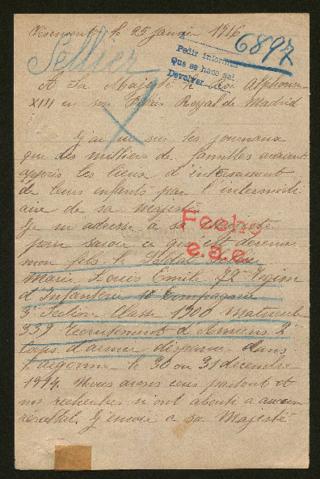 le 25 janvier 1916
6897
Sellier
Pedir informes
Que se hace así
Devolver
A Sa Majesté le Roi Alphonse
XIII en son Palais Royal de Madrid
J'ai vu sur les journaux
que des milliers de familles avaient
appris les lieux d'internement
de leurs enfants par l'intermédi
aire de sa majesté
Je m'adresse à sa Majesté
pour savoir ce qu'est devenu
mon fils le Soldat Sellier
Fecho
e.a.e.
Marie Louis Emile 72 Régim
d'Infanterie 10 Compagnie
3 Section Classe 1900 Matricule
332 Recrutement d'Amiens 2
Corps d'armée disparu dans
l'argonne le 30 ou 31 décembre
1914. Nous avons écrit partout et
nos recherches n'ont abouti à aucun
résultat. J'envoie à sa Majesté